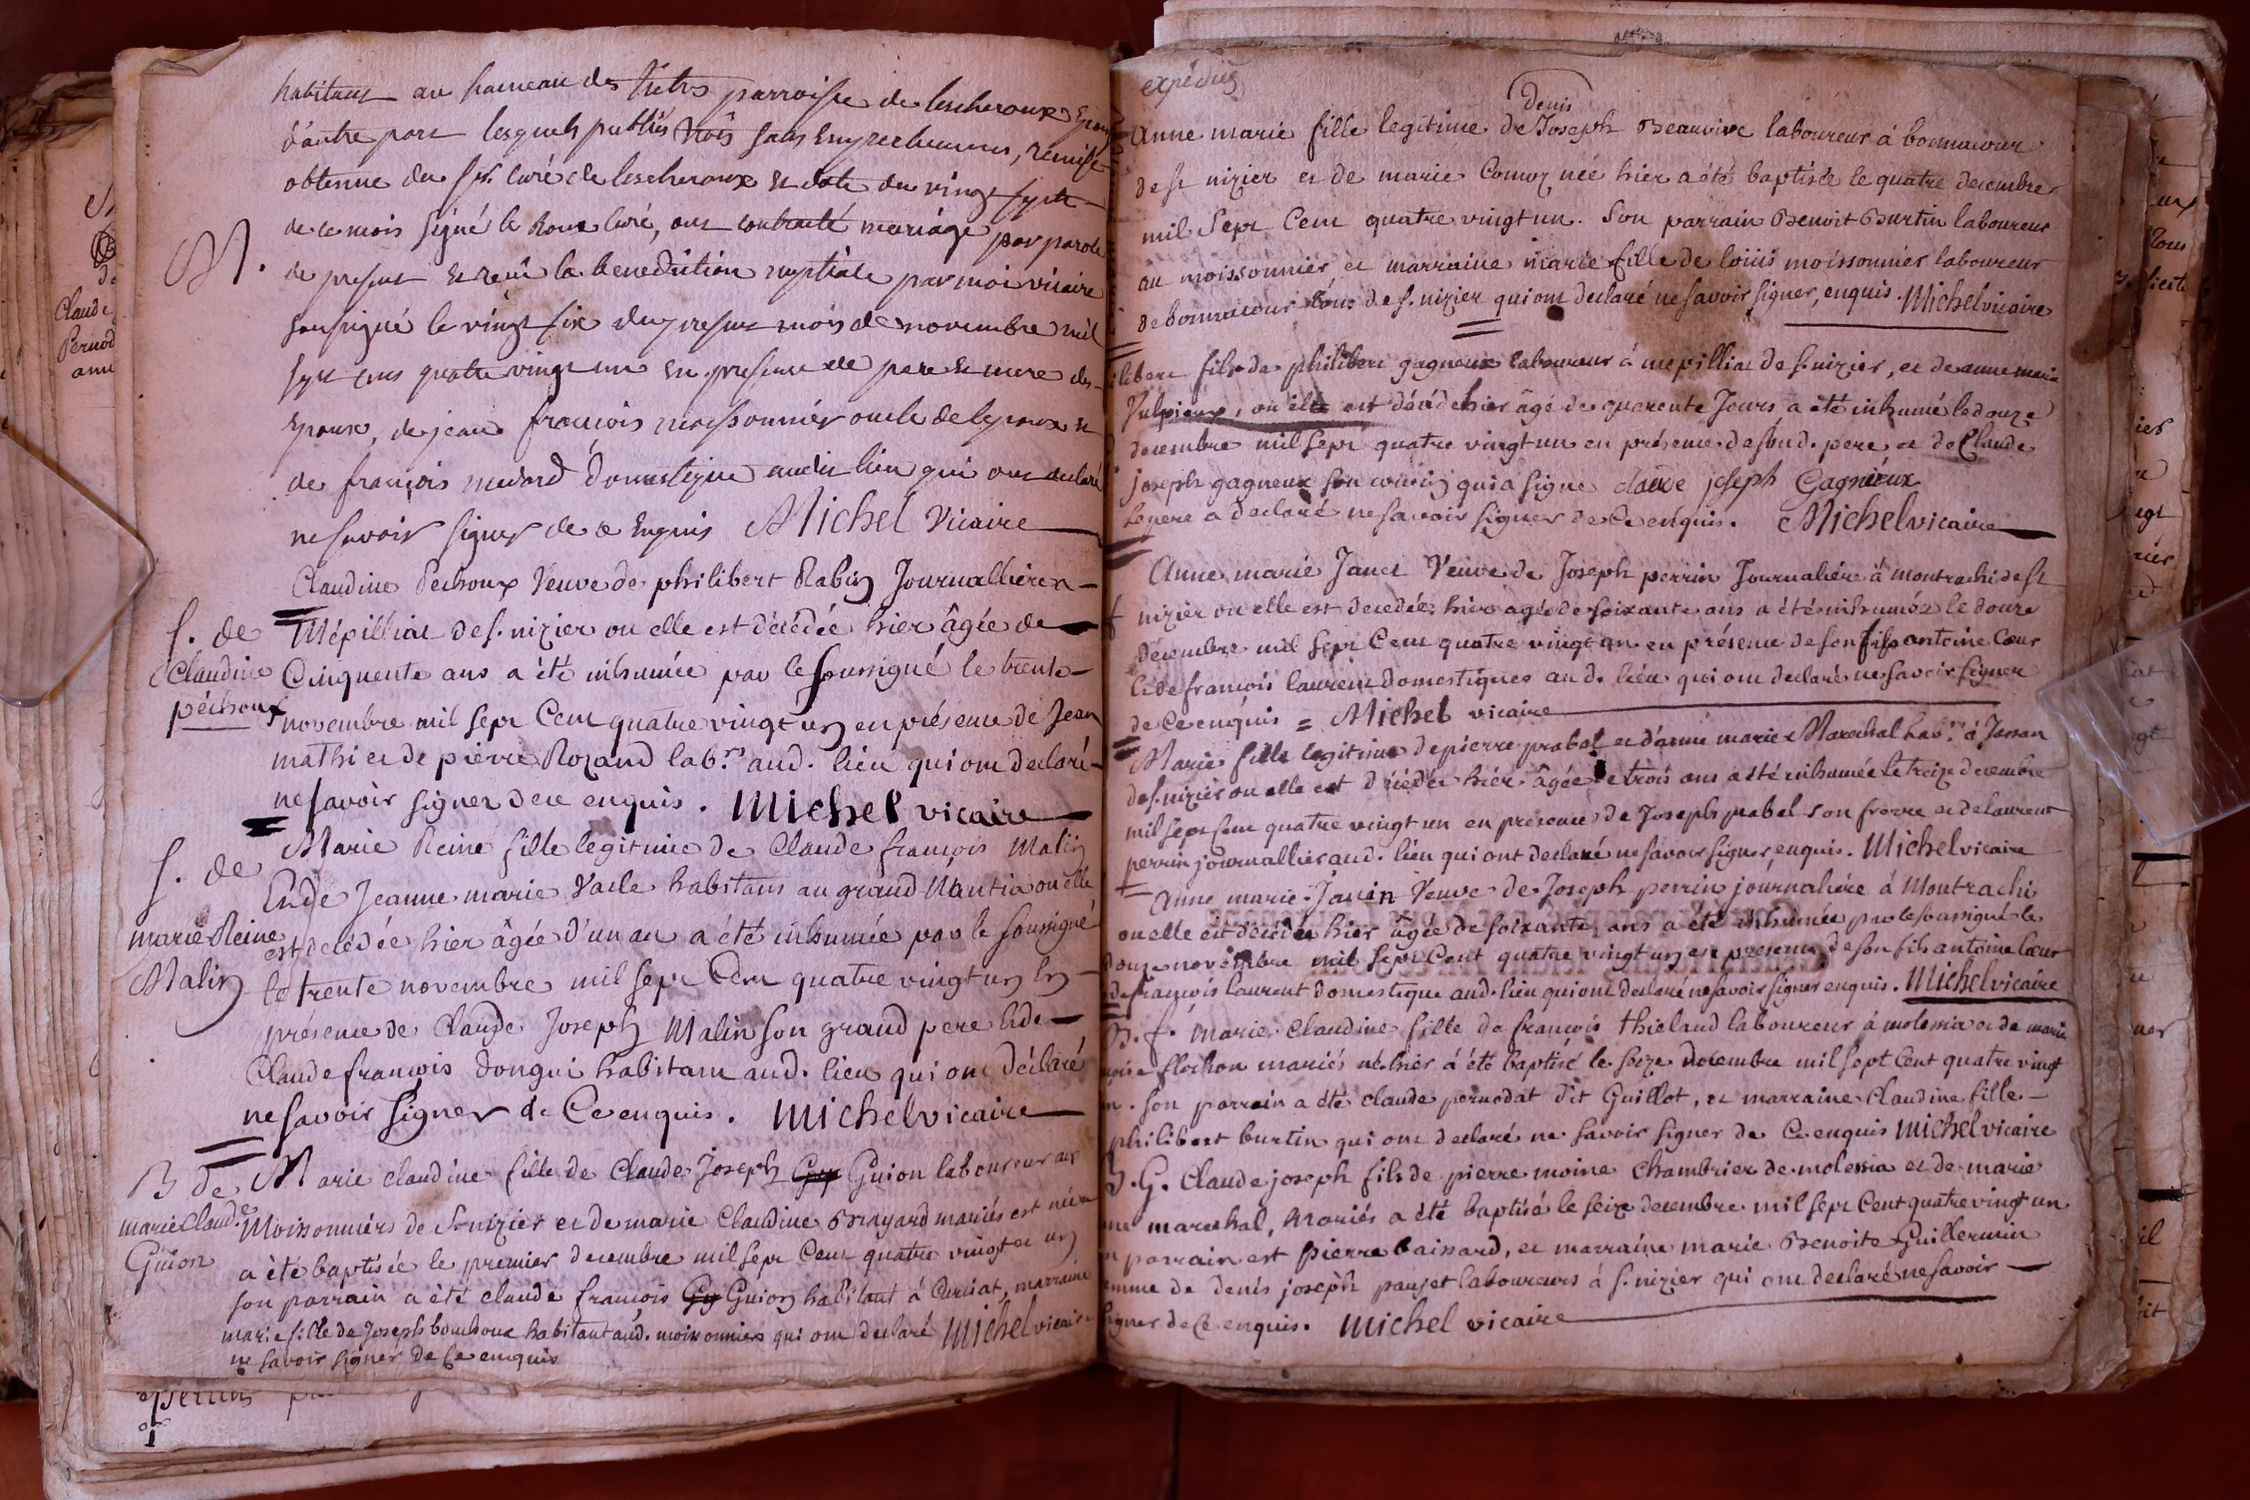 habitans au hameau des parroisse de lescheroux Epoux
d'autre part lesquels publiés trois fois sans Empechement, remise
obtenue du Sr. curé de lescheroux En date du vingt sept
de ce mois signé le Roux curé, ont contracté mariage par parole
M. de present et reçu la benediction nuptiale par moi vicaire
soussigné le vingt six du present mois de novembre mil
sept cens quatre vingt un En presence de pere et mere des
Epoux, de jean françois moissonnier oncle de lepoux et
de françois domestique audit lieu qui ont declaré
ne savoir signer de ce Enquis Michel Vicaire
Claudine Pechoux Veuve de philibert Rabin Journallière a
S. de
Claudine
péchoux
Mépilliat de s. nizier ou elle est décédée hier âgée de
Cinquente ans a été inhumée par le soussigné le trente
novembre mil sept Cent quatre vingt un en présence de Jean
mathi et de pierre Rozand lab.rs aud. lieu qui ont declaré
ne savoir signer de ce enquis. Michel vicaire
S. de
marie Reine
Malin
Marie Reine fille legitime de Claude françois Malin
Et de Jeanne marie Vacle habitans au grand Nantia ou elle
est décédée hier âgée d'un an a été inhumée par le soussigné
le trente novembre mil sept Cent quatre vingt un En
présence de Claude Joseph Malin son grand pere Et de
Claude françois dongui habitant aud. lieu qui ont déclaré
ne savoir signer de Ce enquis. Michel vicaire
B de
marie Claud.e
Guion
Marie claudine fille de Claude Joseph Guion laboureur au
Moissonniers de S. nizier et de marie Claudine Brayard mariés est née
a été baptisée le premier decembre mil sept Cent quatre vingt et un
son parrain a été claude françois Guion habitant à Curciat, marraine
marie fille de Joseph bouchoux habitant aud. moissonniers qui ont declaré Michel vicaire
ne savoir signer de Ce enquis
expédiés
denis
Anne marie fille legitime de Joseph Beauvire laboureur à bonnaiour
de st nizier et de marie Convoz née hier a été baptisée le quatre decembre
mil Sept Cent quatre vingt un. Son parrain Benoit Burtin laboureur
au moissonnier, et marraine marie fille de loüis moissonnier laboureur
de bonnaiour tous de s. nizier qui ont declaré ne savoir signer, enquis. Michel vicaire
libert fils de philibert gagneux laboureur à mepilliat de s. nizier, et de anne marie
Vulpieux, ou elle est décédé hier âgé de quarente Jours a été inhumé le douze
decembre mil sept quatre vingt un en présence de sond. pere et de Claude
joseph gagneux son cousin qui a signé claude joseph Gagnieux
le pere a declaré ne savoir signer de Ce enquis. Michel vicaire
Anne marie Janet Veuve de Joseph perrin Journalière à montrachi de st
nizier ou elle est decedée hier agée de soixante ans a été inhumée le douze
décembre mil sept Cent quatre vingt un en présence de son fils antoine Cœur
et de françois laurent domestiques aud. lieu qui ont declaré ne savoir signer
de Ce enquis = Michel vicaire
Marie fille legitime de pierre prabel et d'anne marie Marechal hab.ns à Jassan
de s. nizier ou elle est décédée hier âgée de trois ans a été inhumée le treize decembre
mil sept Cent quatre vingt un en présence de Joseph prabel son frere et de laurent
perrin journallier aud. lieu qui ont declaré ne savoir signer, enquis. Michel vicaire
Anne marie Janin Veuve de Joseph perrin journalière à Montrachi
ou elle est décédée hier âgée de soixante ans a été inhumée par le soussigné le
douze novembre mil sept Cent quatre vingt un en presence de son fils antoine Cœur
et de françois laurent domestique aud. lieu qui ont declaré ne savoir signer enquis. Michel vicaire
B. f. marie Claudine fille de françois thieland laboureur à molessia et de marie
flochon mariés né hier à été baptisé le seize decembre mil sept Cent quatre vingt
un. son parrain a été claude pernodat dit Guillot, et marraine Claudine fille
philibert burtin qui ont declaré ne savoir signer de Ce enquis Michel vicaire
B. G. Claude joseph fils de pierre moine Chambrier de molessia et de marie
marechal, Mariés a été baptisé le seize decembre mil sept Cent quatre vingt un
parrain est pierre baissard, et marraine marie Benoite Guillermin
femme de denis joseph paujet laboureurs à s. nizier qui ont declaré ne savoir
signer de Ce enquis. Michel vicaire